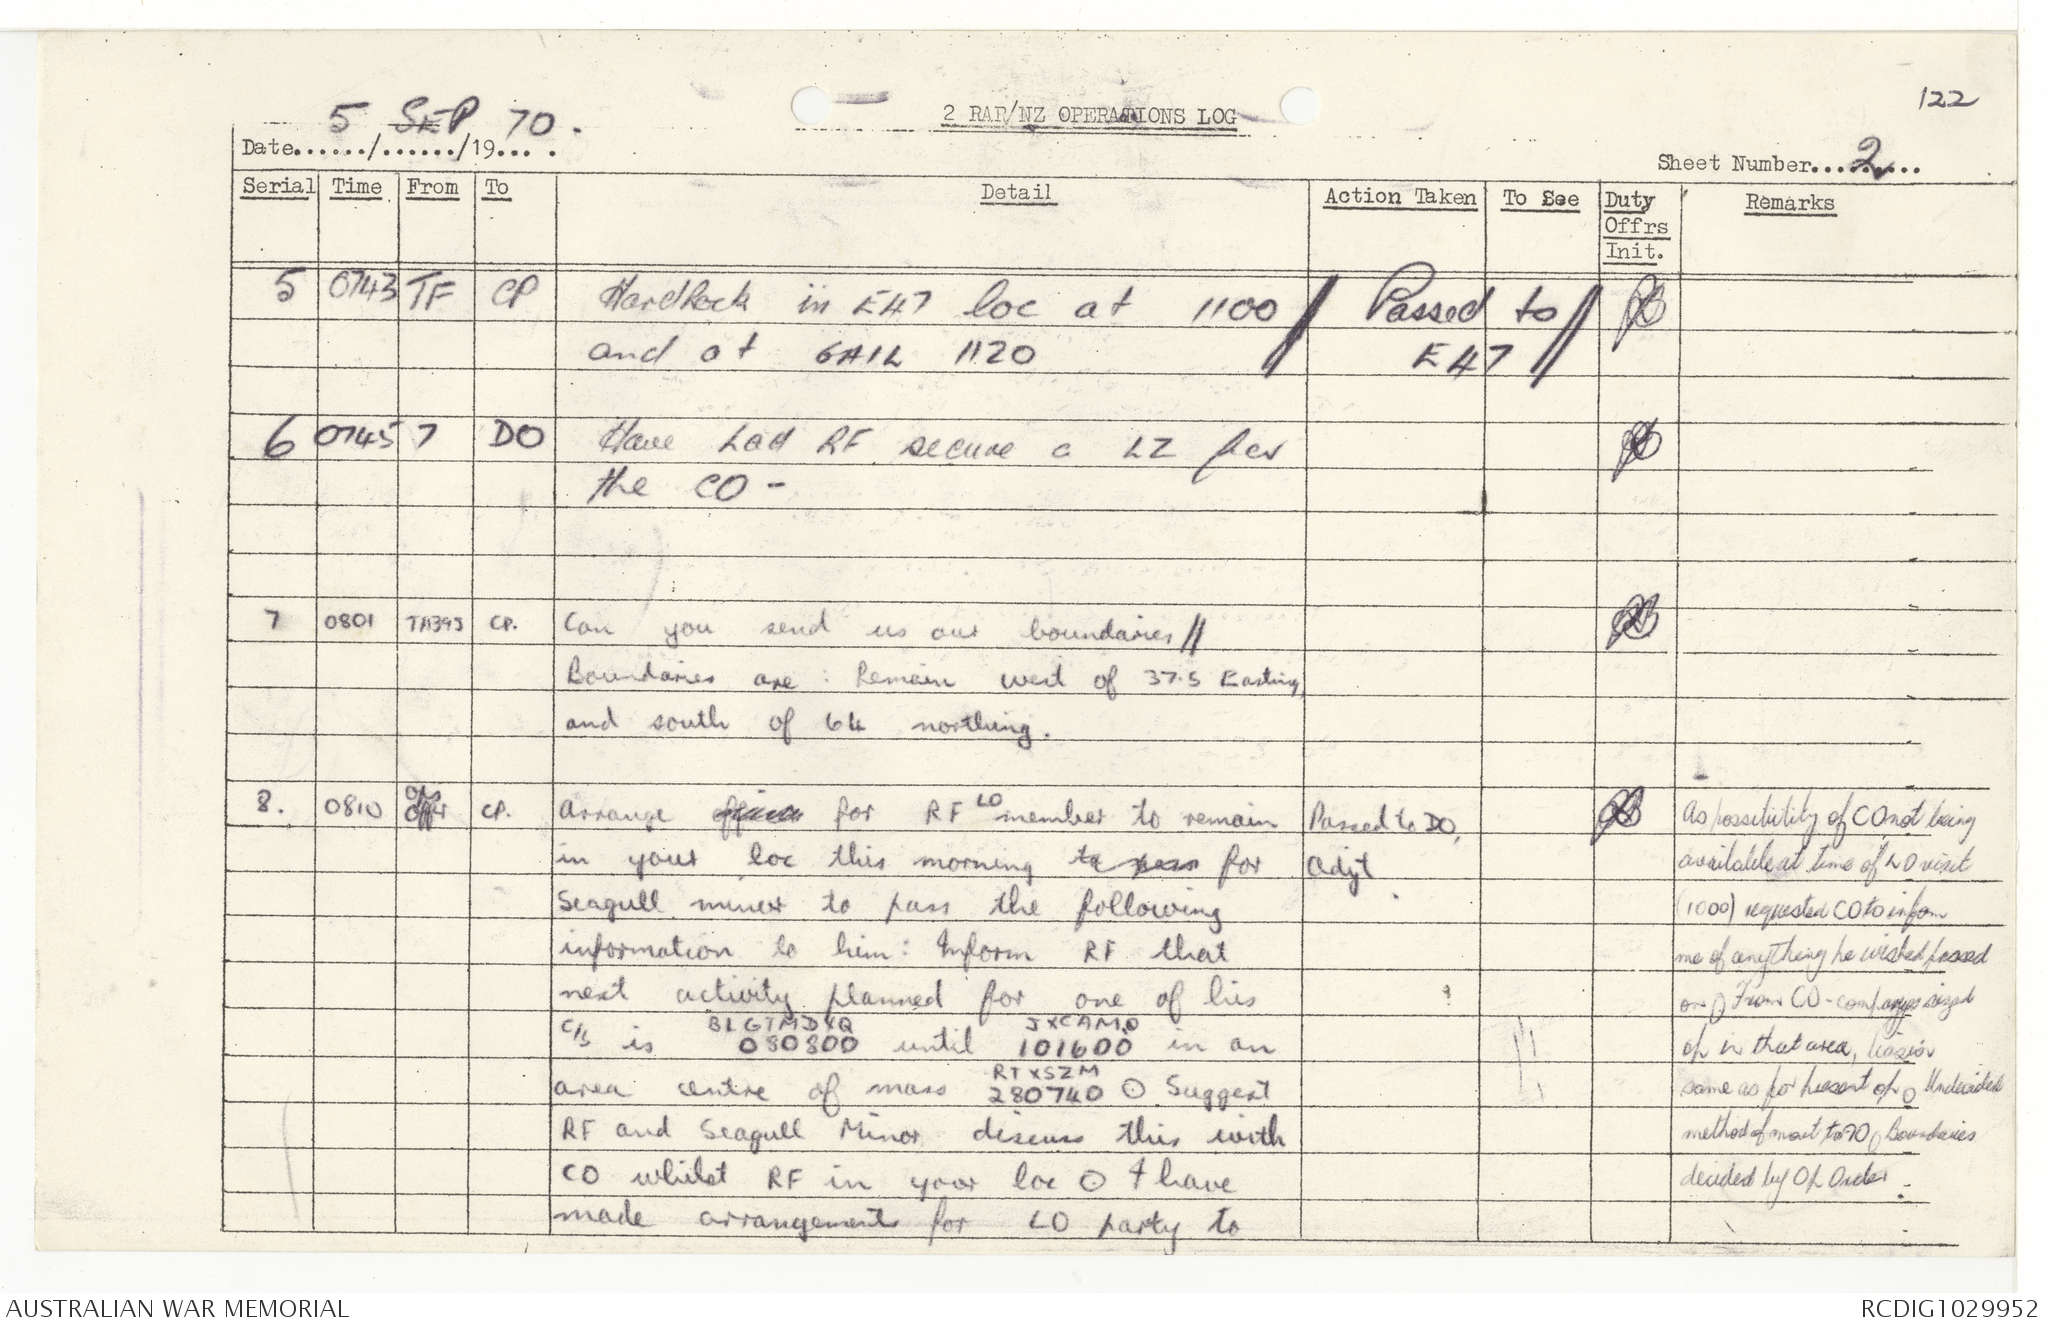 122
5 SEP 70.
2 RAR/NZ OPERATIONS LOG
Date....../....../19.... .
Sheet Number....2....
Serial Time From To Detail Action Taken To See Duty Offrs Init. Remarks
5 0743 TF CP HardRock in E47 loc at 1100 // Passed to //
and at GAIL 1120 E47
6 0745 7 DO Have had RF secure a LZ for
the CO -
7 0801 CP. Can you send us our boundaries //
Boundaries are : Remain west of 37.5 Easting,
and south of 64 northing.
8. 0810 Ops Offr CP. Arrange for RF LO member to remain Passed to DO,
in your loc this morning to pass for Adjt
Seagull minor to pass the following
information to him: Inform RF that
next activity planned for one of his
BLGTMDXQ JXCAMO
C/S is 080800 until 101600 in an
RTXSZM
area centre of mass 280740 ⊙ Suggest
RF and Seagull Minor discuss this with
CO whilst RF in your loc ⊙ I have
made arrangements for LO party to
As possibility of CO not being
available at time of LO visit
(1000) requested CO to inform
me of anything he wished passed
on From CO - company sized
op in that area, liaison
same as for present op Undecided
method of mout to Boundaries
decided by Op Order.
AUSTRALIAN WAR MEMORIAL
RCDIG1029952